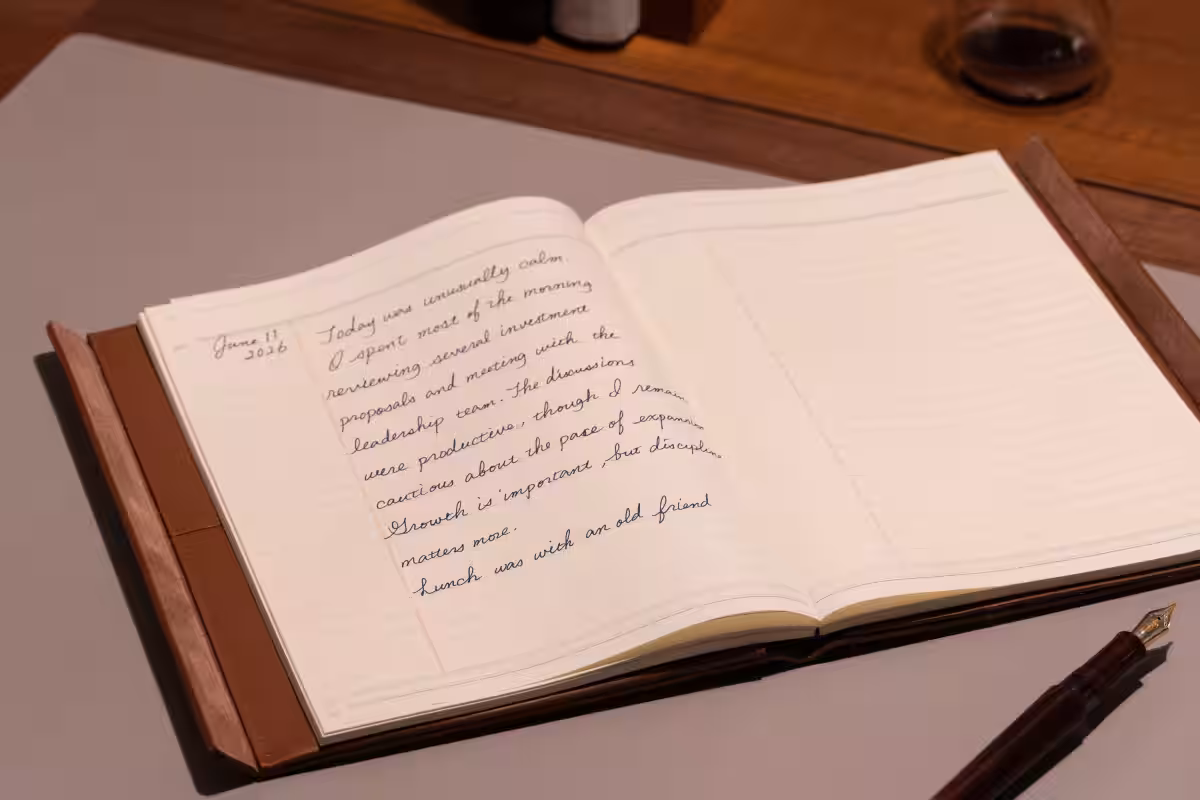 June 11
2026
Today was unusually calm.
I spent most of the morning
reviewing several investment
proposals and meeting with the
leadership team. The discussions
were productive, though I remain
cautious about the pace of expansion
Growth is important, but discipline
matters more.
Lunch was with an old friend